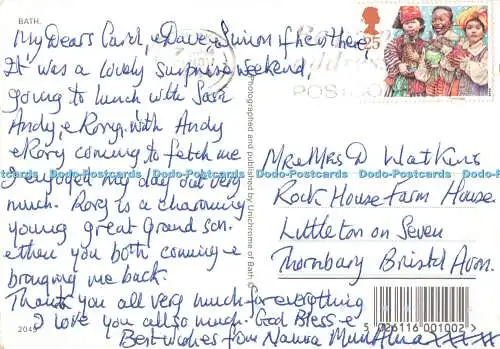 BATH.
My Dears Carol, & Dave & Simon if he other
It was a lovely surprise weekend
going to lunch with
Andy, & Rory, with Andy
& Rory coming to fetch me
I enjoyed my day out very
much. Rory is a charming
young great Grand son.
& then you both coming &
bringing me back.
Thank you all very much for everything
I love you all so much. God Bless &
Best wishes from
25
POST
Mr & Mrs D Watkins
Rock House Farm House
Littleton on Seven
Thornbury Bristol Avon.
Photographed and published by Unichrome of Bath ©
5 026116 001002 >
Dodo-Postcards Dodo-Postcards Dodo-Postcards Dodo-Postcards